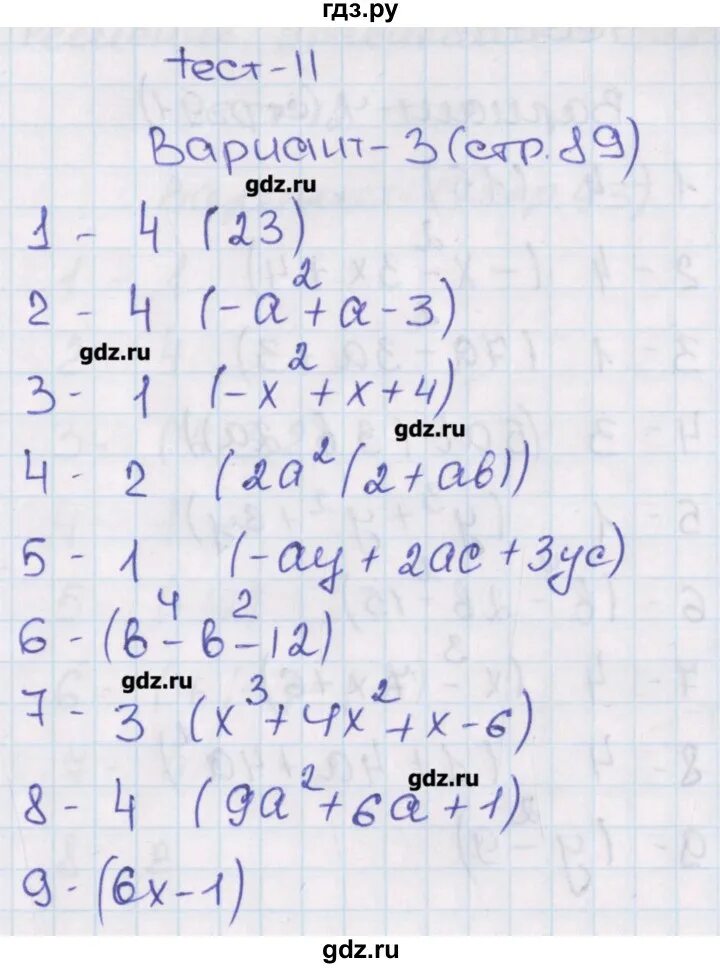 гдз.ру
тест-11
Вариант-3 (стр.89)
gdz.ru
1 - 4 (23)
2 - 4 (-a²+a-3)
gdz.ru
3 - 1 (-x²+x+4)
gdz.ru
4 - 2 (2a²(2+ab))
5 - 1 (-ay+2ac+3yc)
6 - (b⁴-b²-12)
gdz.ru
7 - 3 (x³+4x²+x-6)
gdz.ru
8 - 4 (9a²+6a+1)
9 - (6x-1)
gdz.ru